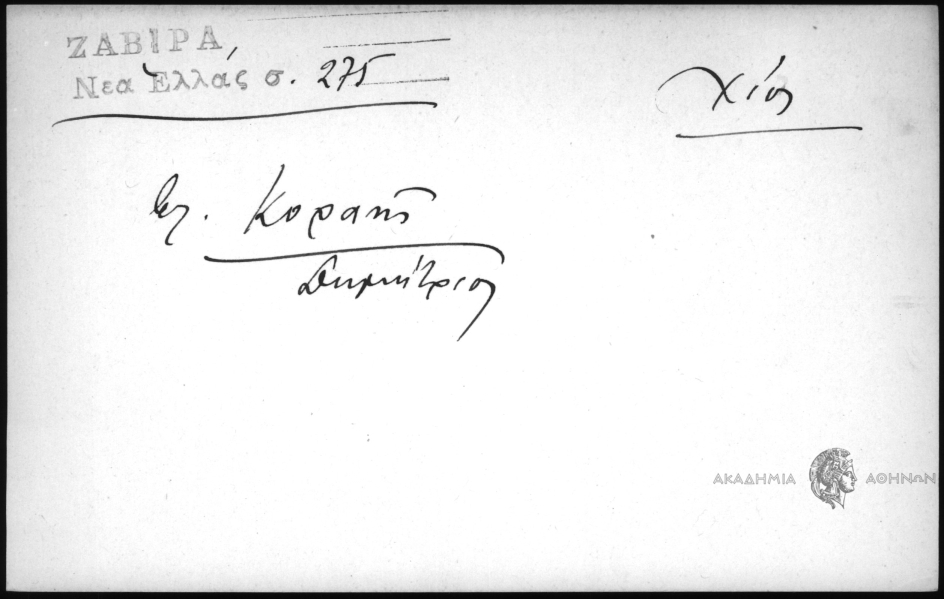 ΖΑΒΙΡΑ,
Νεα Ελλάς σ. 275
Χίος
Κοραης
Δημήτριος
ΑΚΑΔΗΜΙΑ ΑΘΗΝΩΝ